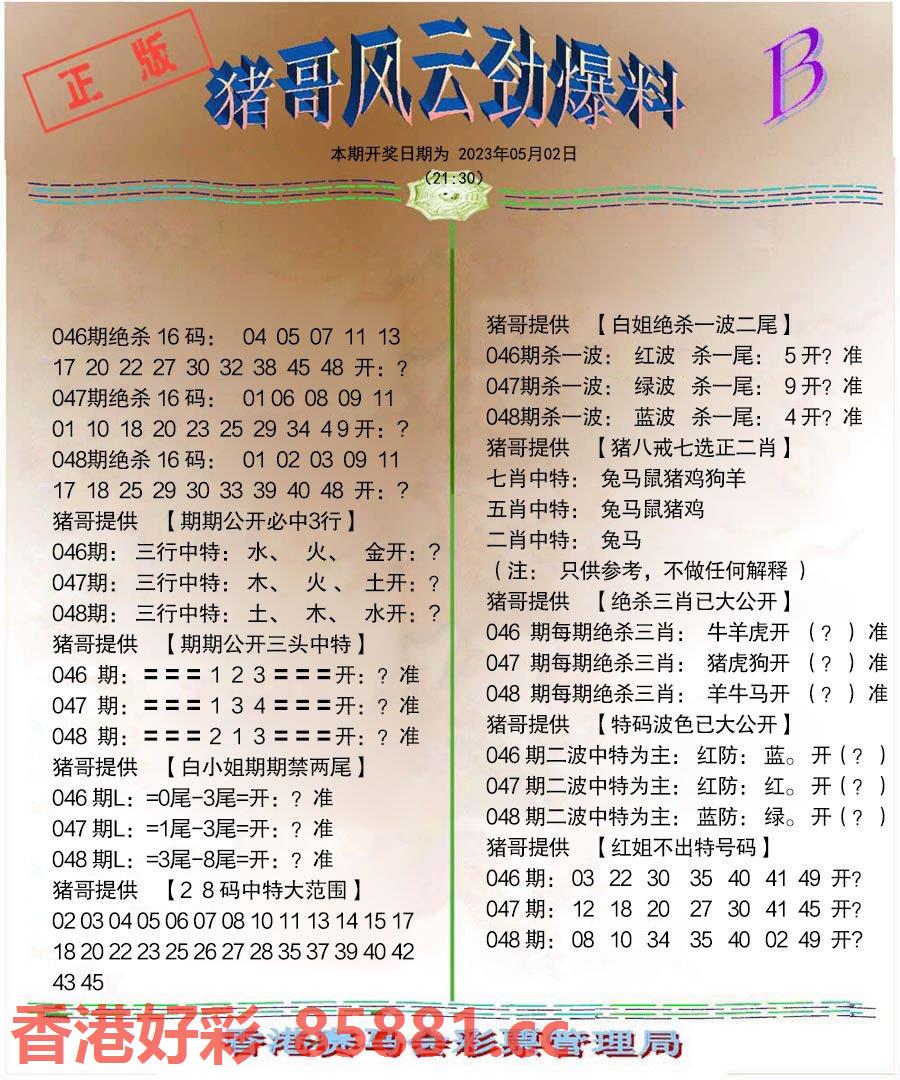 正版
猪哥风云劲爆料
B
本期开奖日期为 2023年05月02日
(21:30)
046期绝杀 16 码： 04 05 07 11 13
17 20 22 27 30 32 38 45 48 开：?
047期绝杀 16 码： 01 06 08 09 11
01 10 18 20 23 25 29 34 4 9 开：?
048期绝杀 16 码： 01 02 03 09 11
17 18 25 29 30 33 39 40 48 开：?
猪哥提供 【期期公开必中3行】
046期： 三行中特： 水、 火、 金开：?
047期： 三行中特： 木、 火、土开：?
048期： 三行中特： 土、 木、 水开：?
猪哥提供 【期期公开三头中特】
046 期：〓〓〓1 2 3〓〓〓开：? 准
047 期：〓〓〓1 3 4〓〓〓开：? 准
048 期：〓〓〓2 1 3〓〓〓开：? 准
猪哥提供 【白小姐期期禁两尾】
046 期L：=0尾-3尾=开：? 准
047 期L：=1尾-3尾=开：? 准
048 期L：=3尾-8尾=开：? 准
猪哥提供 【2 8 码中特大范围】
02 03 04 05 06 07 08 10 11 13 14 15 17
18 20 22 23 25 26 27 28 35 37 39 40 42
43 45
猪哥提供 【白姐绝杀一波二尾】
046期杀一波： 红波 杀一尾： 5 开? 准
047期杀一波： 绿波 杀一尾： 9 开? 准
048期杀一波： 蓝波 杀一尾： 4 开? 准
猪哥提供 【猪八戒七选正二肖】
七肖中特： 兔马鼠猪鸡狗羊
五肖中特： 兔马鼠猪鸡
二肖中特： 兔马
（注： 只供参考，不做任何解释 ）
猪哥提供 【绝杀三肖已大公开】
046 期每期绝杀三肖： 牛羊虎开 （？）准
047 期每期绝杀三肖： 猪虎狗开 （？）准
048 期每期绝杀三肖： 羊牛马开 （？）准
猪哥提供 【特码波色已大公开】
046 期二波中特为主：红防：蓝。开（？）
047 期二波中特为主：红防：红。开（？）
048 期二波中特为主：蓝防：绿。开（？）
猪哥提供 【红姐不出特号码】
046 期： 03 22 30 35 40 41 49 开?
047 期： 12 18 20 27 30 41 45 开?
048 期： 08 10 34 35 40 02 49 开?
香港好彩 85881.cc
香港赛马会彩票管理局